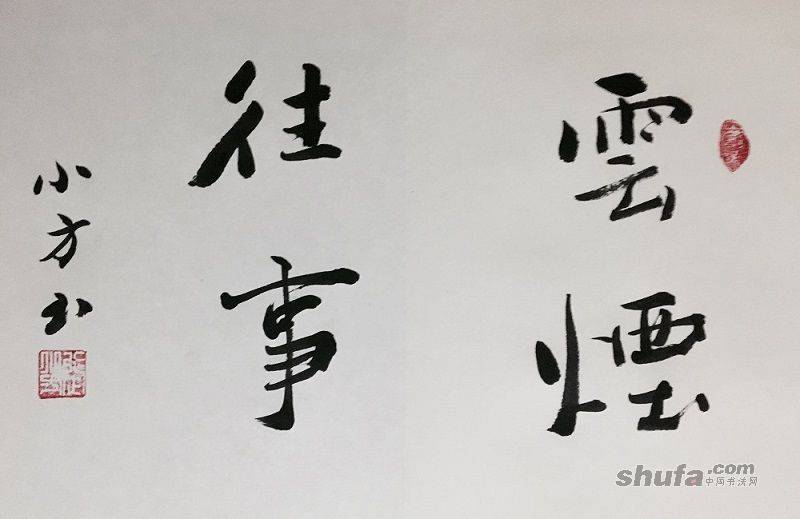 雲煙
往事
小方书
shufa.com
中国书法网